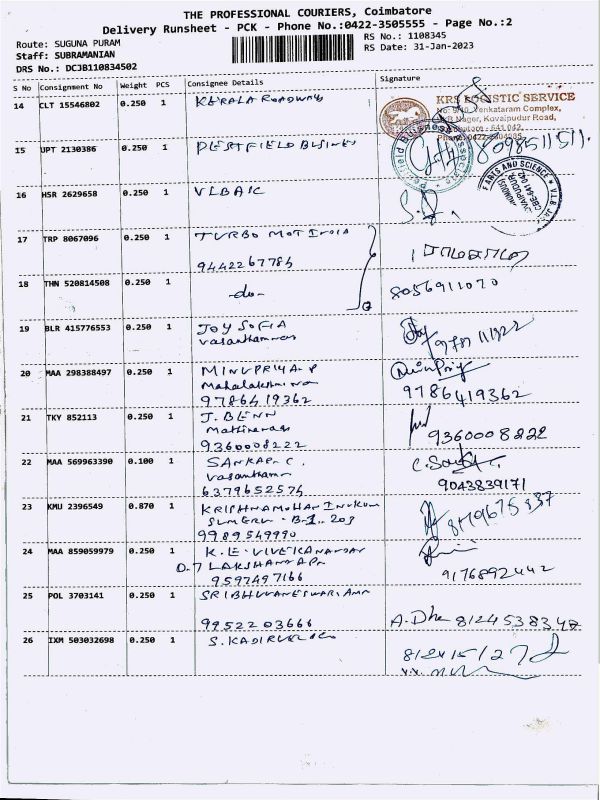 THE PROFESSIONAL COURIERS, Coimbatore
Delivery Runsheet - PCK - Phone No.:0422-3505555 - Page No.:2
Route: SUGUNA PURAM
RS No.: 1108345
Staff: SUBRAMANIAN
RS Date: 31-Jan-2023
DRS No.: DCJB110834502
S No Consignment No Weight PCS Consignee Details Signature
14 CLT 15546802 0.250 1 KERALA ROADWAYS
KRS LOGISTIC SERVICE
No: 9/40, Venkataram Complex,
Nagar, Kovaipudur Road,
15 UPT 2130386 0.250 1 PESTFIELD BUSINESS
8098511511.
16 HSR 2629658 0.250 1 VLBAIC
ARTS AND SCIENCE
17 TRP 8067096 0.250 1 TURBO MOT INDIA
9442267784
18 THN 520814508 0.250 1 -do-
8056911070
19 BLR 415776553 0.250 1 JOY SOFIA
20 MAA 298388497 0.250 1 MINUPRIYA P
9786419362
9786419362
21 TKY 852113 0.250 1 J. BENN
9360008222
9360008222
22 MAA 569963390 0.100 1 SANKAR C.
6379652574
9043839171
23 KMU 2396549 0.870 1 KRISHNAMOHAN
SUMERU - B-1- 203
9989549990
24 MAA 859059979 0.250 1 K. E. VIVEKANANDAN
D.7 LAKSHANA APN
9597497166
9176892442
25 POL 3703141 0.250 1 SRIBHUVANESWARI AMN
9952203666
A. Dha 8124538348
26 IXM 503032698 0.250 1 S. KADIRVEL